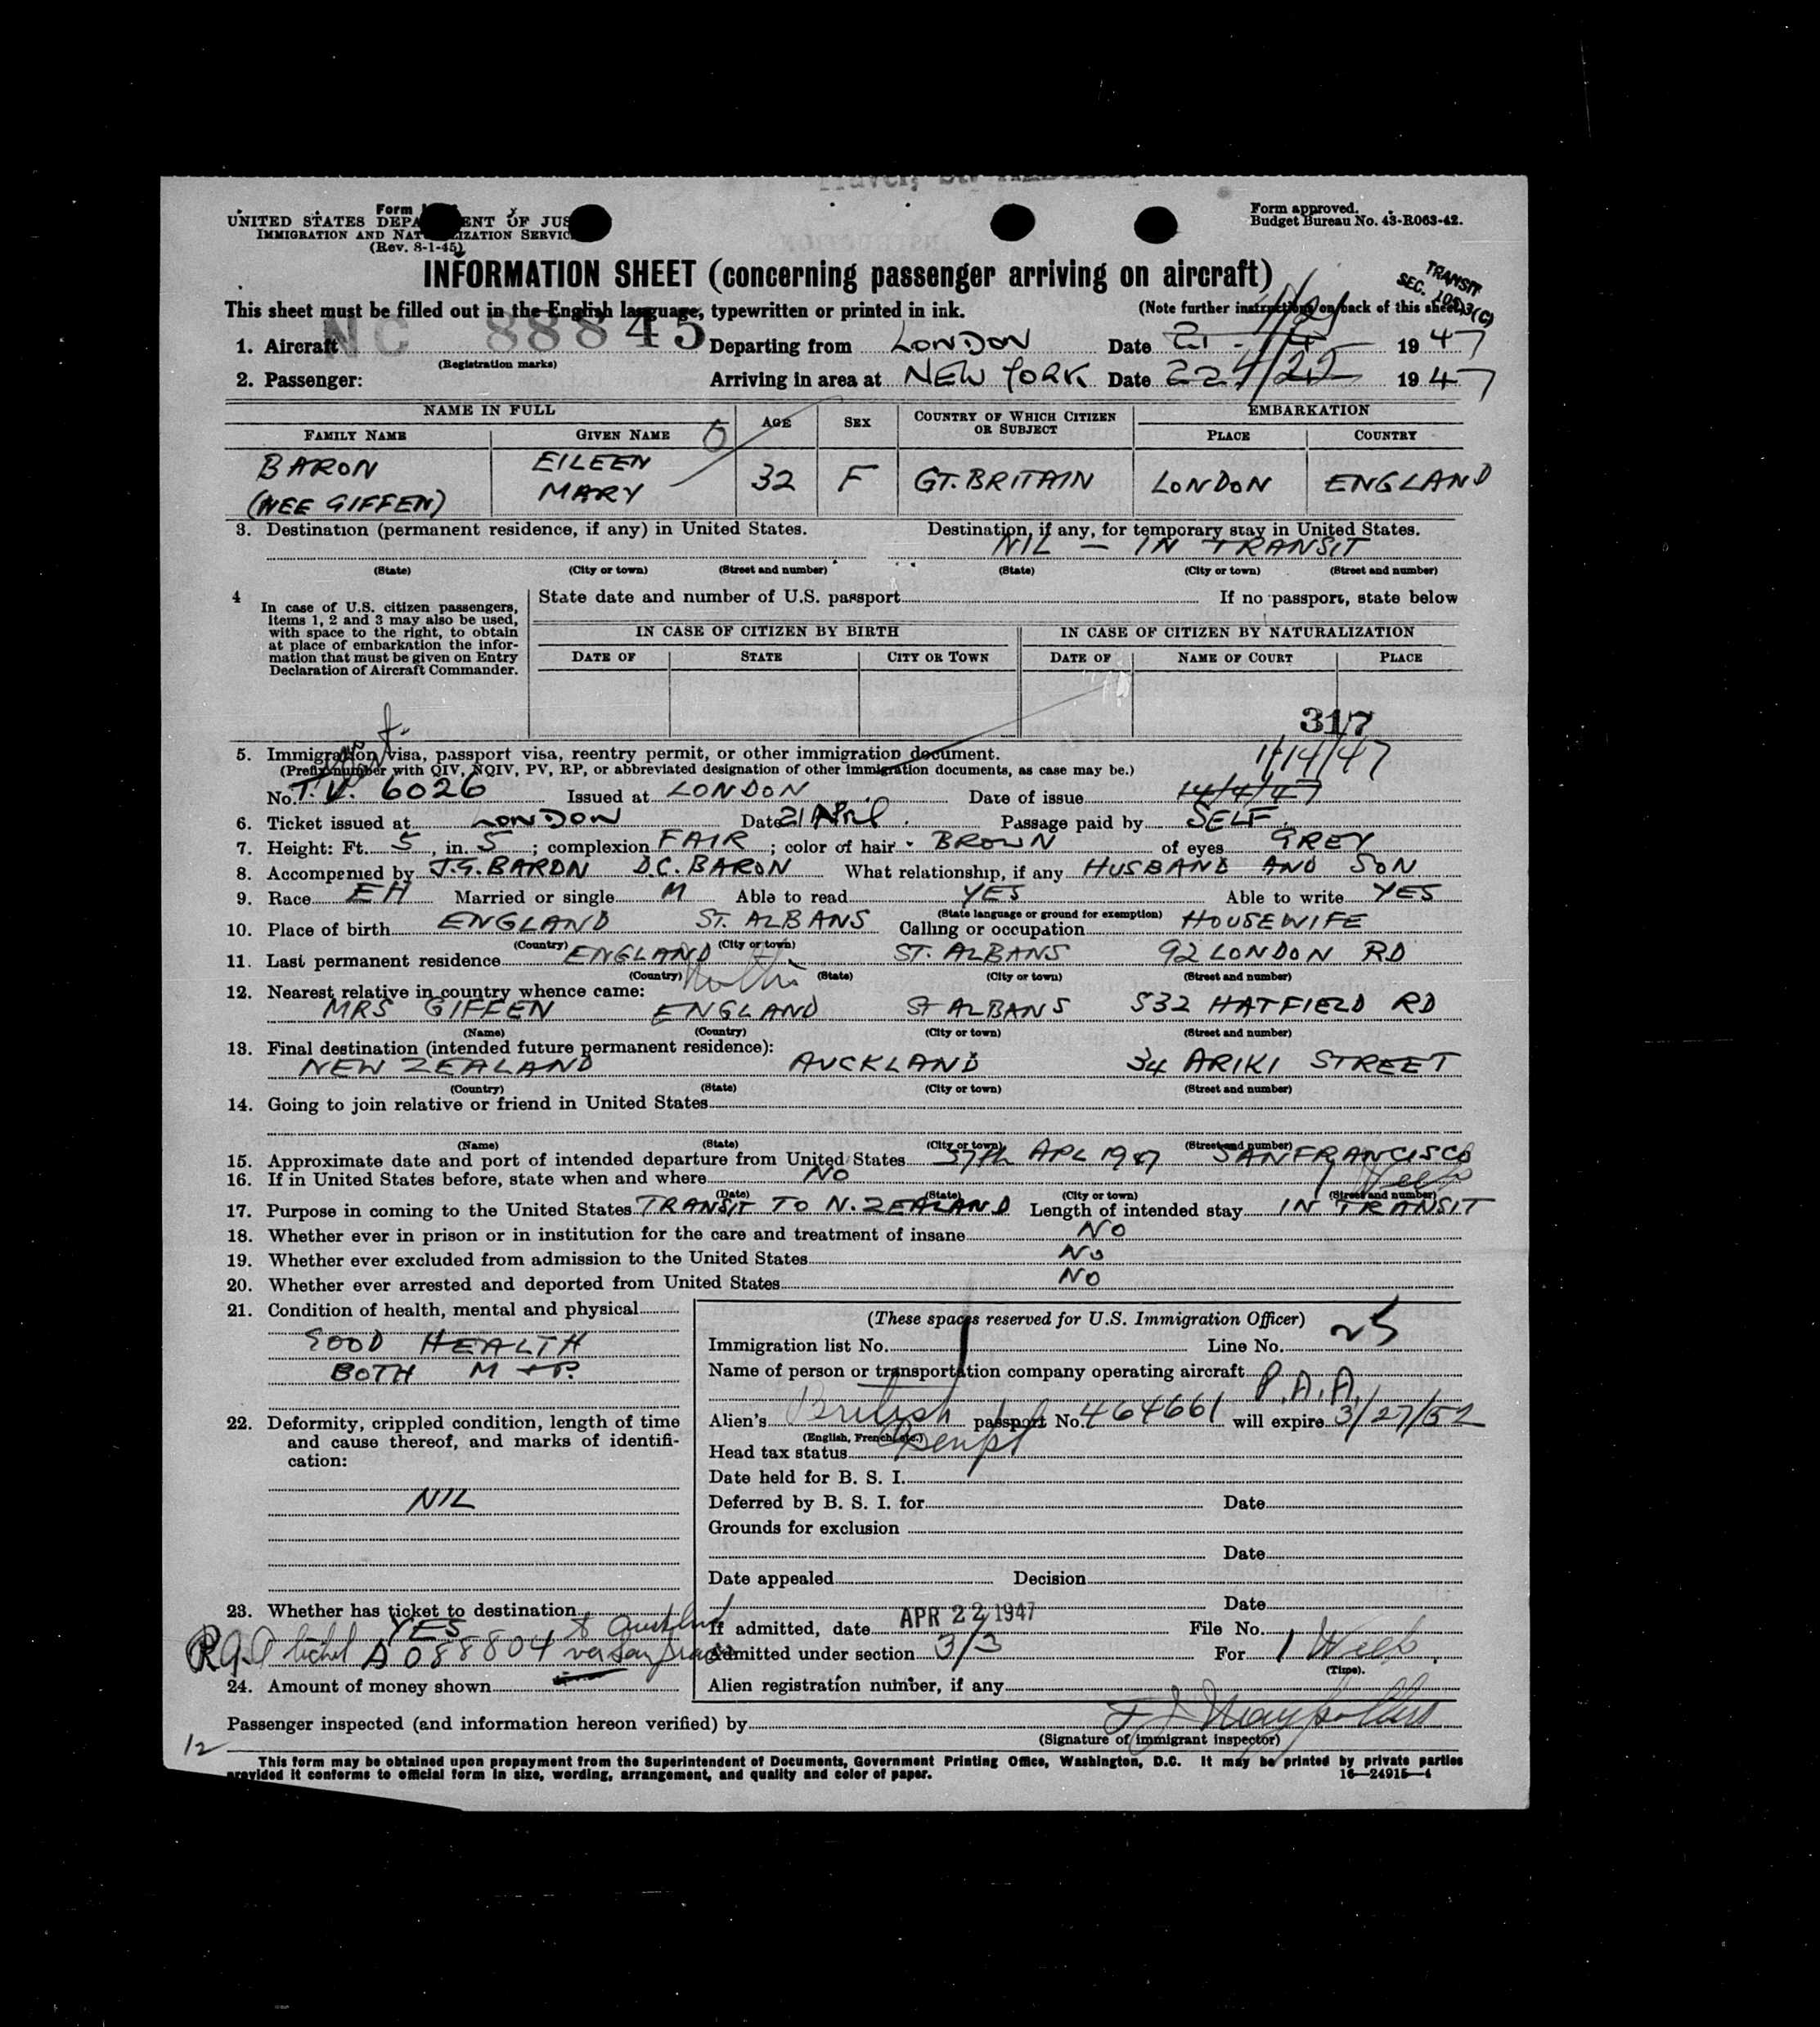 Form
UNITED STATES DEPA ENT OF JUS
IMMIGRATION AND NAT IZATION SERVIC
(Rev. 8-1-45)
Form approved.
Budget Bureau No. 43-R063-42.
INFORMATION SHEET (concerning passenger arriving on aircraft)
TRANSIT
SEC.
This sheet must be filled out in the English language, typewritten or printed in ink. (Note further instructions on back of this sheet)
1. Aircraft NC 88845 Departing from LONDON Date 21 4/21 1947
(Registration marks)
2. Passenger: Arriving in area at NEW YORK Date 22 4/22 1947
NAME IN FULL AGE SEX COUNTRY OF WHICH CITIZEN OR SUBJECT EMBARKATION
FAMILY NAME GIVEN NAME PLACE COUNTRY
BARON EILEEN
(NEE GIFFEN) MARY 32 F GT. BRITAIN LONDON ENGLAND
3. Destination (permanent residence, if any) in United States. Destination, if any, for temporary stay in United States.
NIL — IN TRANSIT
(State) (City or town) (Street and number) (State) (City or town) (Street and number)
4 In case of U.S. citizen passengers, items 1, 2 and 3 may also be used, with space to the right, to obtain at place of embarkation the information that must be given on Entry Declaration of Aircraft Commander.
State date and number of U.S. passport If no passport, state below
IN CASE OF CITIZEN BY BIRTH IN CASE OF CITIZEN BY NATURALIZATION
DATE OF STATE CITY OR TOWN DATE OF NAME OF COURT PLACE
317
5. Immigration visa, passport visa, reentry permit, or other immigration document.
(Prefix number with QIV, NQIV, PV, RP, or abbreviated designation of other immigration documents, as case may be.)
No. T.V. 6026 Issued at LONDON Date of issue 14/4/47
6. Ticket issued at LONDON Date 21 April. Passage paid by SELF.
7. Height: Ft. 5, in. 5; complexion FAIR; color of hair BROWN of eyes GREY
8. Accompanied by J.G. BARON D.C. BARON What relationship, if any HUSBAND AND SON
9. Race EH Married or single M Able to read YES Able to write YES
(State language or ground for exemption)
10. Place of birth ENGLAND ST. ALBANS Calling or occupation HOUSEWIFE
(Country) (City or town)
11. Last permanent residence ENGLAND ST. ALBANS 92 LONDON RD
(Country) (State) (City or town) (Street and number)
12. Nearest relative in country whence came:
MRS GIFFEN ENGLAND ST ALBANS 532 HATFIELD RD
(Name) (Country) (City or town) (Street and number)
13. Final destination (intended future permanent residence):
NEW ZEALAND AUCKLAND 34 ARIKI STREET
(Country) (State) (City or town) (Street and number)
14. Going to join relative or friend in United States
(Name) (State) (City or town) (Street and number)
15. Approximate date and port of intended departure from United States APL 1947 SAN FRANCISCO
16. If in United States before, state when and where NO
(Date) (State) (City or town) (Street and number)
17. Purpose in coming to the United States TRANSIT TO N. ZEALAND Length of intended stay IN TRANSIT
18. Whether ever in prison or in institution for the care and treatment of insane NO
19. Whether ever excluded from admission to the United States No
20. Whether ever arrested and deported from United States NO
21. Condition of health, mental and physical
GOOD HEALTH
BOTH M + P.
22. Deformity, crippled condition, length of time and cause thereof, and marks of identification:
NIL
23. Whether has ticket to destination
YES
ticket A 088804
24. Amount of money shown
(These spaces reserved for U.S. Immigration Officer)
Immigration list No. Line No. 25
Name of person or transportation company operating aircraft P.A.A.
Alien's British passport No. 464661 will expire 3/27/52
(English, French, etc.)
Head tax status Exempt
Date held for B. S. I.
Deferred by B. S. I. for Date
Grounds for exclusion
Date
Date appealed Decision
Date
If admitted, date APR 22 1947 File No.
Admitted under section 3/3 For 1 Week
(Time).
Alien registration number, if any
Passenger inspected (and information hereon verified) by
(Signature of immigrant inspector)
12
This form may be obtained upon prepayment from the Superintendent of Documents, Government Printing Office, Washington, D.C. It may be printed by private parties
provided it conforms to official form in size, wording, arrangement, and quality and color of paper. 16—24915—4